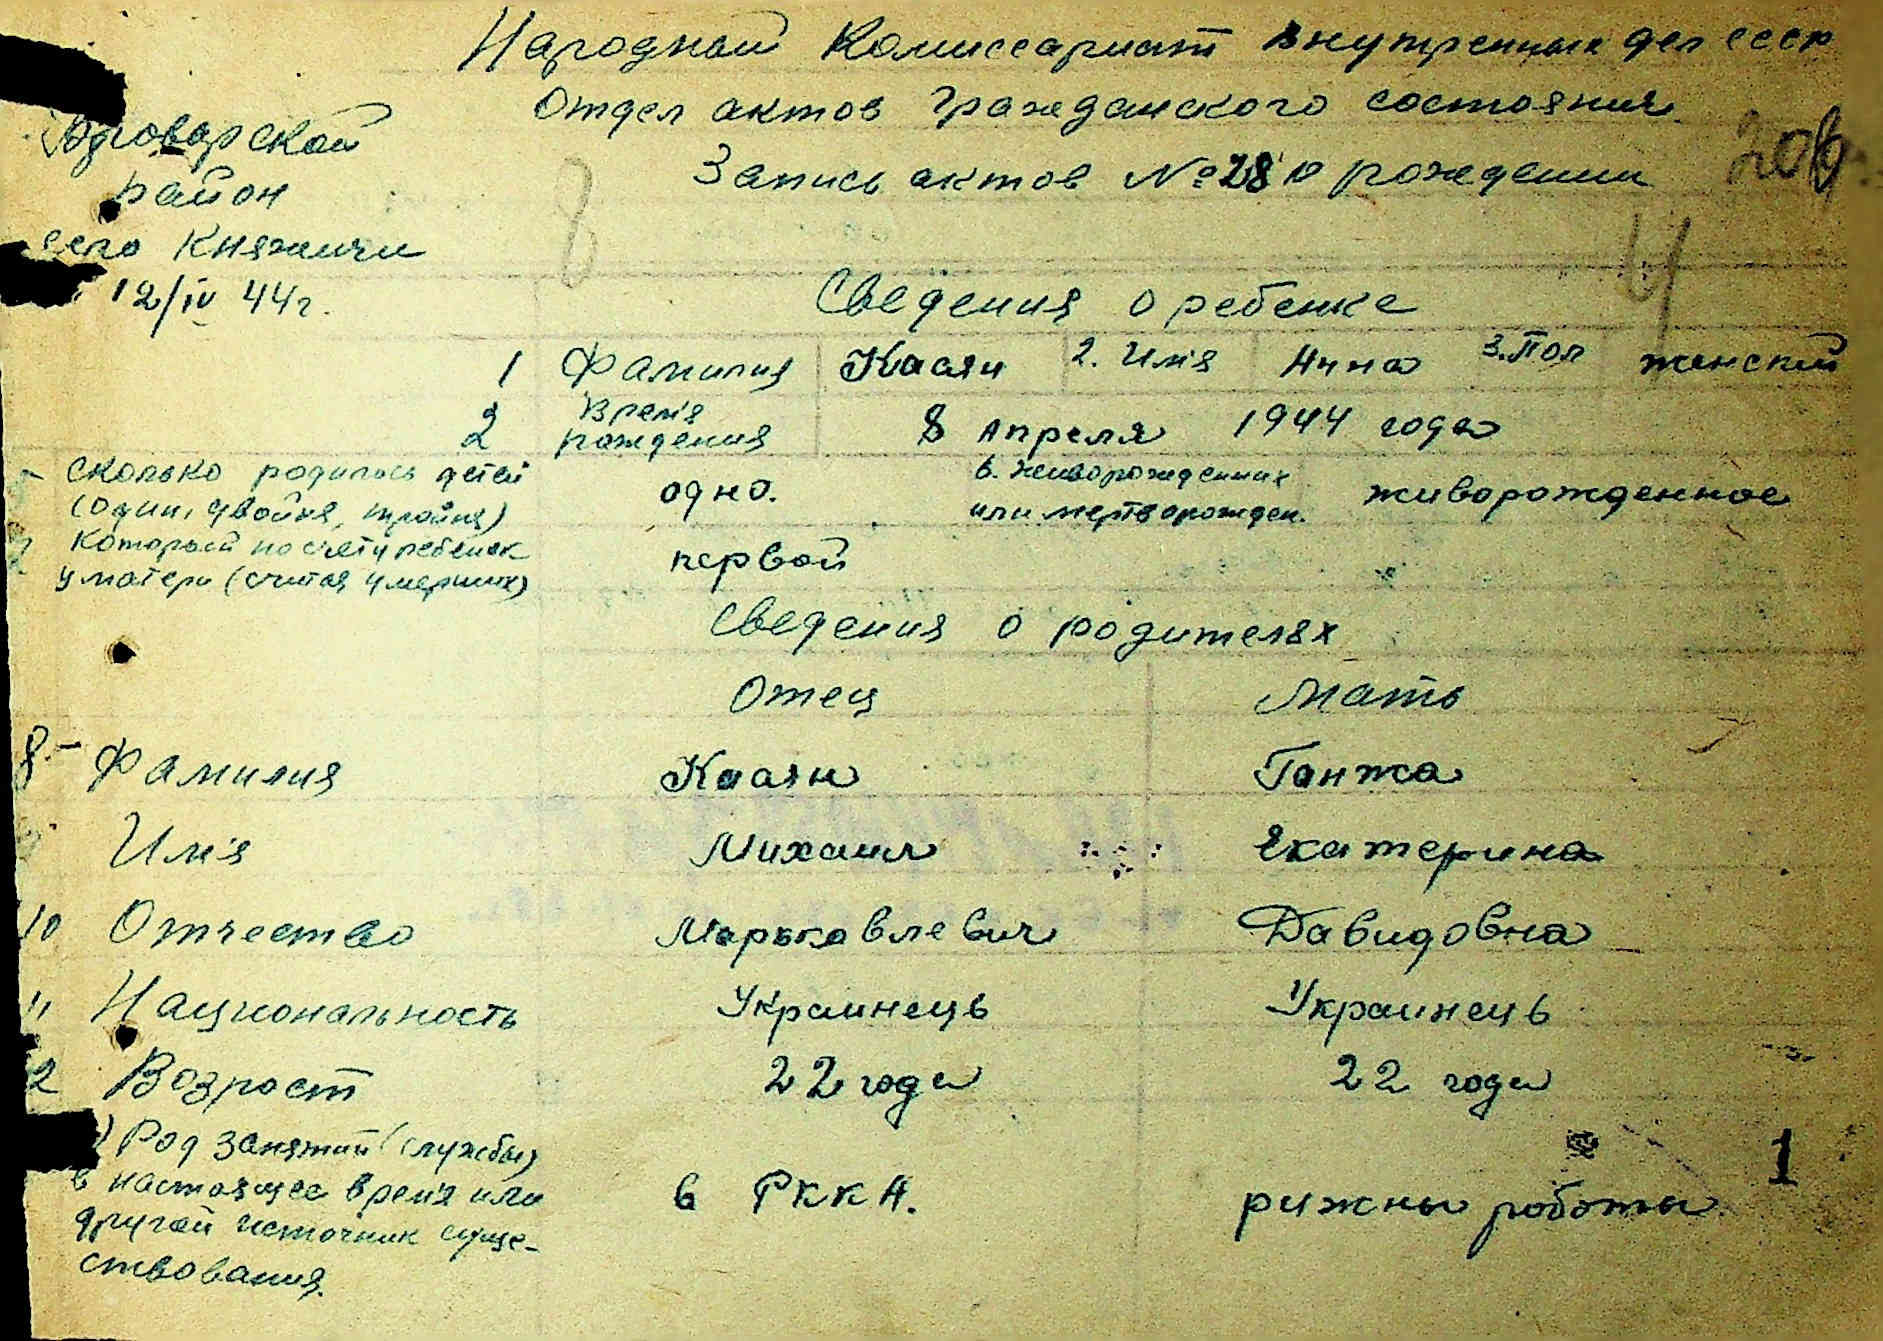 Народной Комиссариат внутренных дел СССР
Отдел актов гражданского состояния
район
село Княжичи
12/IV 44 г.
Запись актов № 28 о рождении
20
8
Ч
Сведения о ребенке
1 Фамилия Касян 2. Им'я Анна 3. Пол женский
2 Врем'я рождения 8 Апреля 1944 года
Сколько родилось детей
(один, двойня, тройня)
одно.
6. живорожденних
или мертворожден.
живорожденное
Который по счету ребенок
у матери (считая умерших)
первой
Сведения о родителях
Отец Мать
8 - Фамилия Касян Ганжа
Им'я Михаил Екатерина
10 Отчество Марьковлевич Давидовна
11 Национальность Украинець Украинець
2 Возрост 22 года 22 года
) Род занятий (службы)
в настоящее врем'я или
другой источник суще-
ствования.
в РККА.
рижны роботы
1